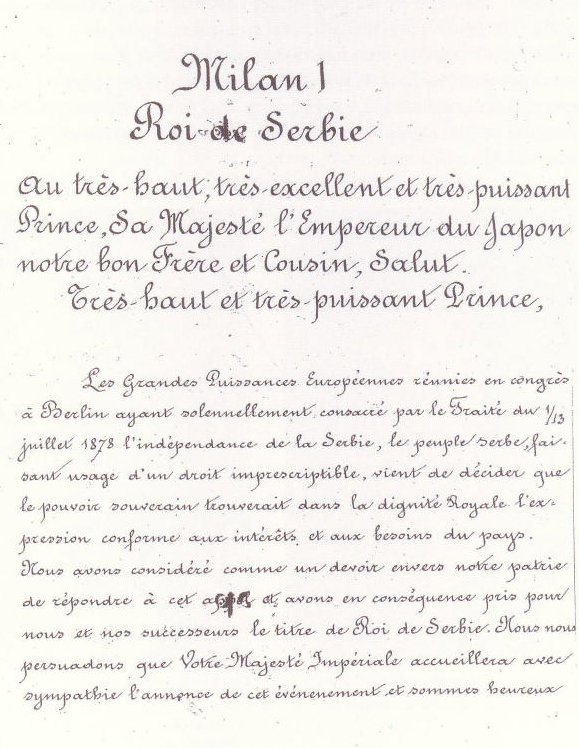 Milan I
Roi de Serbie
Au très-haut, très-excellent et très-puissant
Prince, Sa Majesté l'Empereur du Japon
notre bon Frère et Cousin, Salut.
Très-haut et très-puissant Prince,
Les Grandes Puissances Européennes réunies en congrès
à Berlin ayant solennellement consacré par le Traité du 1/13
juillet 1878 l'indépendance de la Serbie, le peuple serbe, fai-
sant usage d'un droit imprescriptible, vient de décider que
le pouvoir souverain trouverait dans la dignité Royale l'ex-
pression conforme aux intérêts et aux besoins du pays.
Nous avons considéré comme un devoir envers notre patrie
de répondre à cet appel et avons en conséquence pris pour
nous et nos successeurs le titre de Roi de Serbie. Nous nous
persuadons que Votre Majesté Impériale accueillera avec
sympathie l'annonce de cet événement et sommes heureux